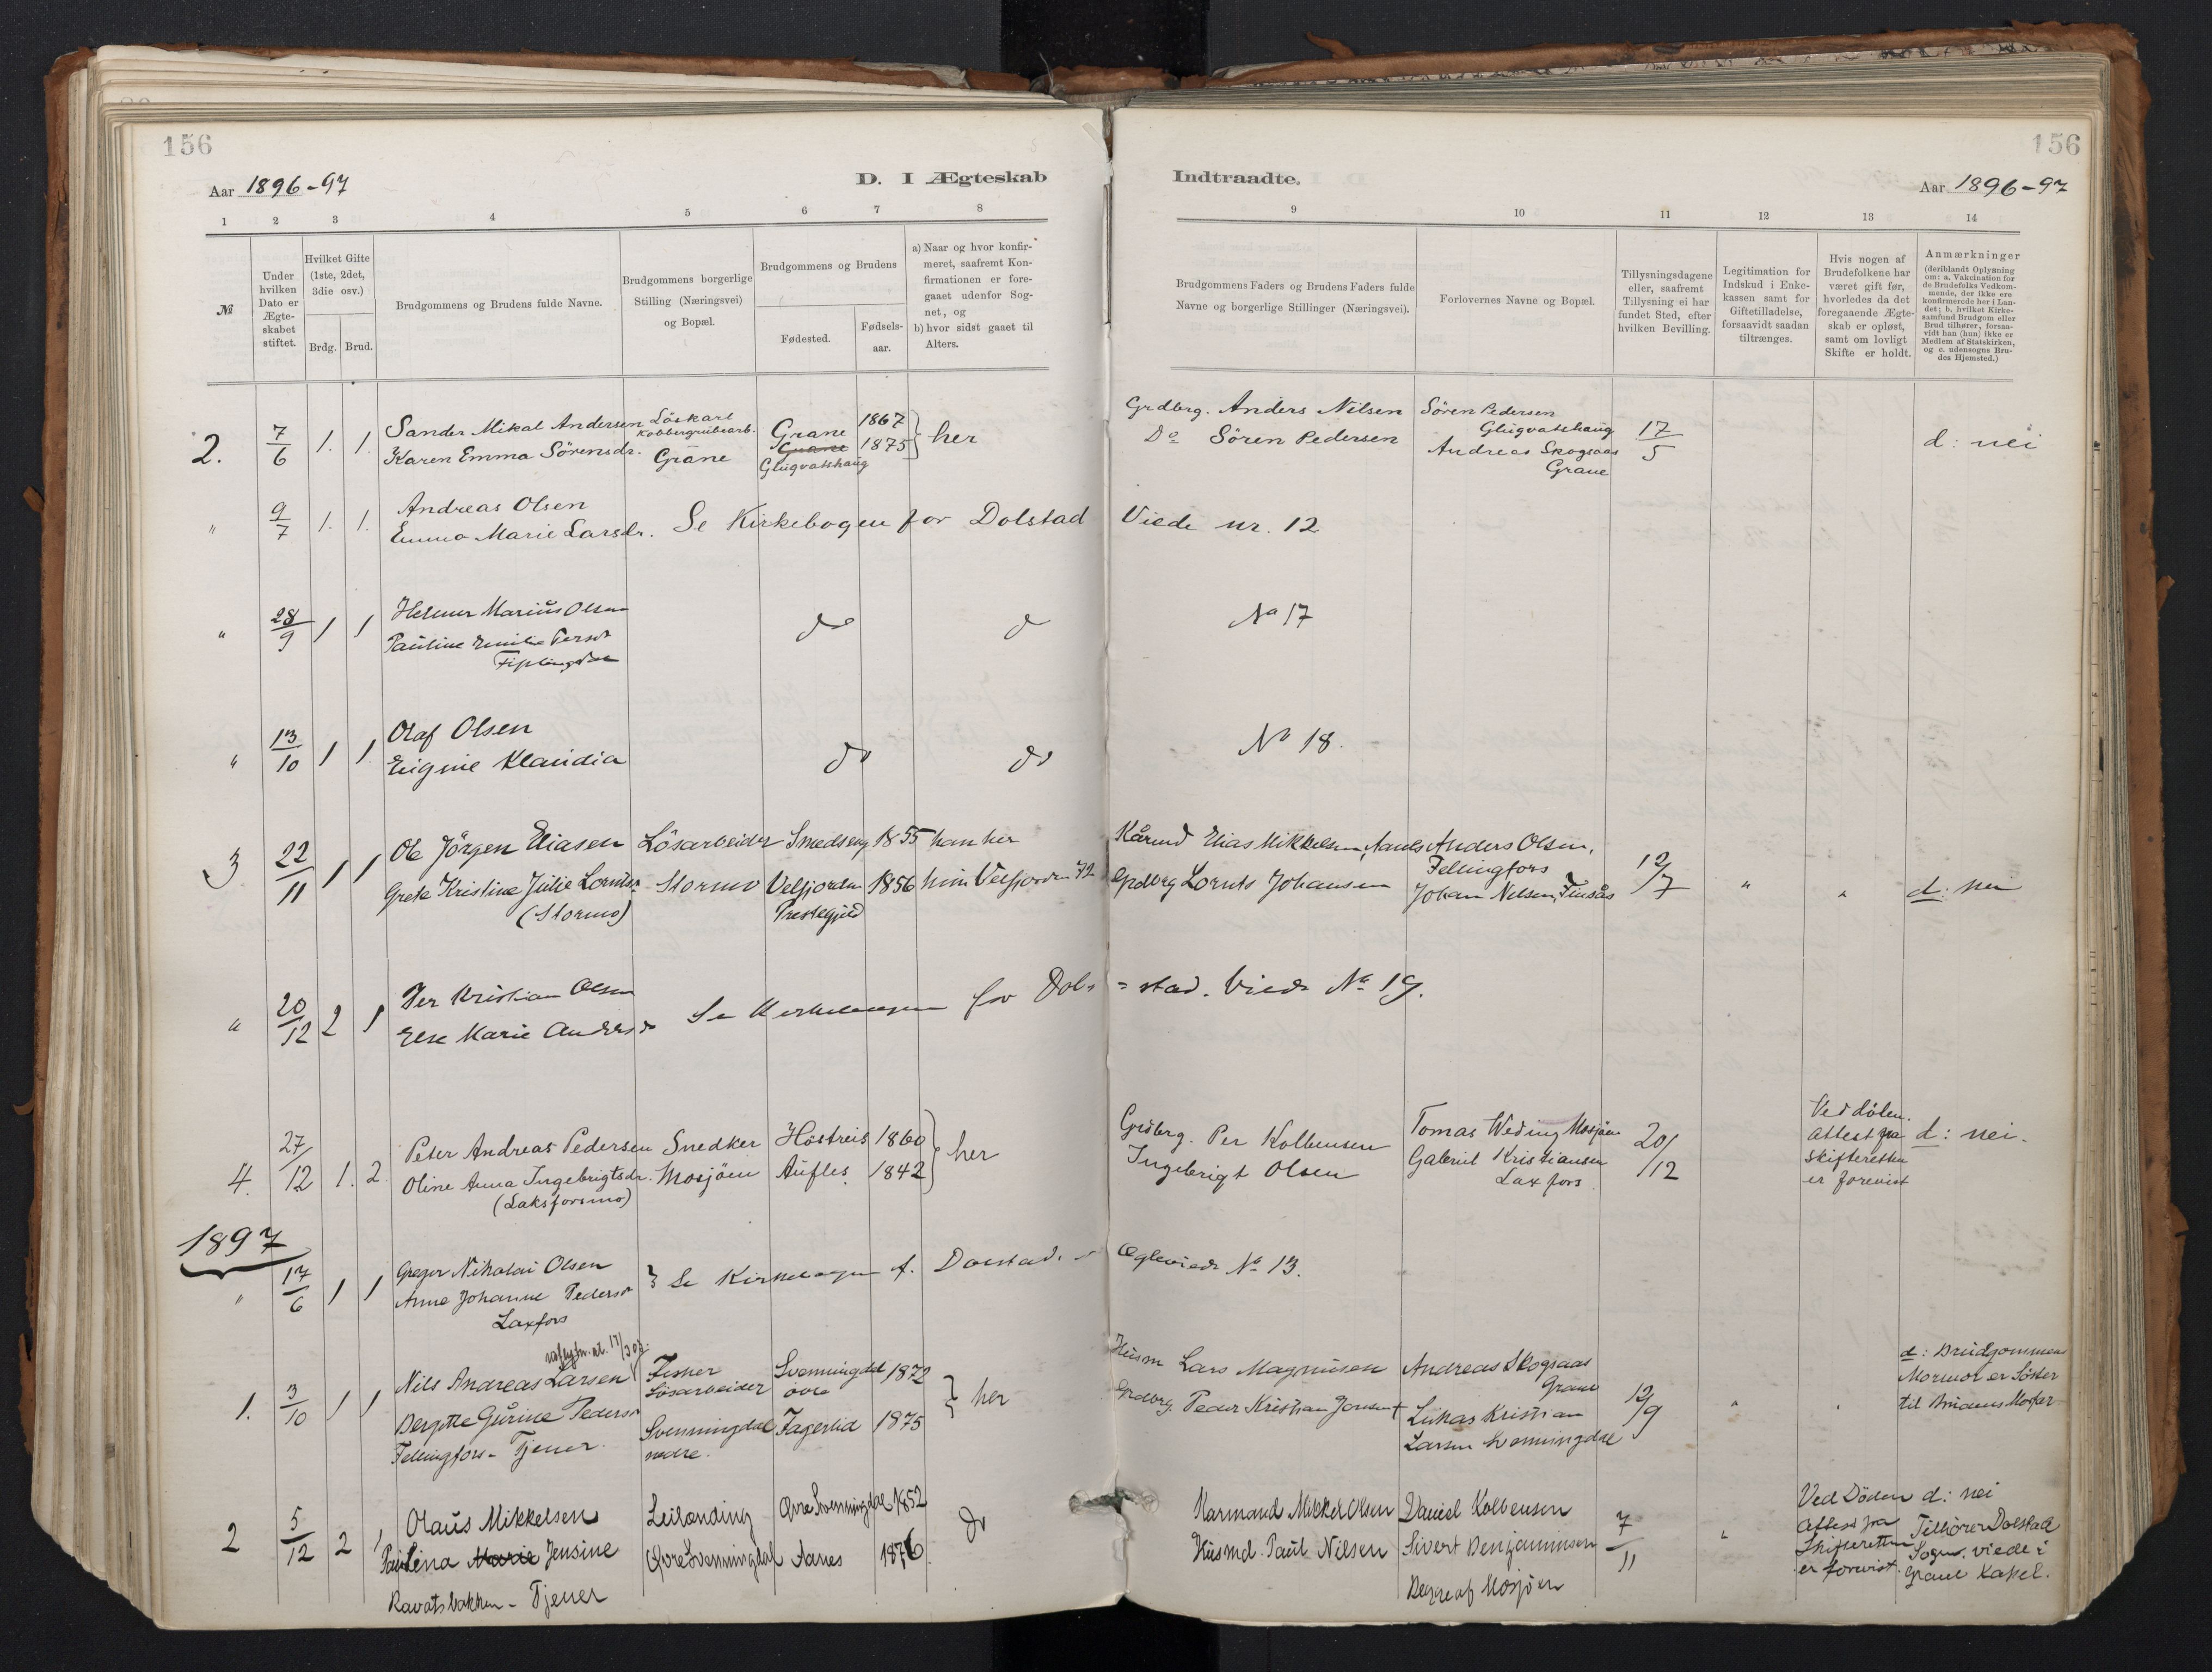 156
156
Aar 1896-97
D. I Ægteskab
Indtraadte.
Aar 1896-97
1 2 3 4 5 6 7 8 9 10 11 12 13 14
№
Under hvilken Dato er Ægteskabet stiftet.
Hvilket Gifte (1ste, 2det, 3die osv.)
Brdg. Brud.
Brudgommens og Brudens fulde Navne.
Brudgommens borgerlige Stilling (Næringsvei) og Bopæl.
Brudgommens og Brudens
Fødested.
Fødsels-aar.
a) Naar og hvor konfirmeret, saafremt Konfirmationen er foregaaet udenfor Sognet, og
b) hvor sidst gaaet til Alters.
Brudgommens Faders og Brudens Faders fulde Navne og borgerlige Stillinger (Næringsvei).
Forlovernes Navne og Bopæl.
Tillysningsdagene eller, saafremt Tillysning ei har fundet Sted, efter hvilken Bevilling.
Legitimation for Indskud i Enkekassen samt for Giftetilladelse, forsaavidt saadan tiltrænges.
Hvis nogen af Brudefolkene har været gift før, hvorledes da det foregaaende Ægteskab er opløst, samt om lovligt Skifte er holdt.
Anmærkninger (deriblandt Oplysning om: a. Vakcination for de Brudefolks Vedkommende, der ikke ere konfirmerede her i Landet; b. hvilket Kirkesamfund Brudgom eller Brud tilhører, forsaavidt han (hun) ikke er Medlem af Statskirken, og c. udensogns Brudes Hjemsted.)
2. 7/6 1. 1. Sander Mikal Andersen Löskarl Kobbergrubearb. Grane 1867 her Grdbrg. Anders Nilsen Sören Pedersen Glugvatshaug 17/5 d: nei
Karen Emma Sörensdr. Grane Grane Glugvatshaug 1875 Do Sören Pedersen Andreas Skogsaas Grane
" 9/7 1. 1. Andreas Olsen
Emma Marie Larsdr. Se Kirkebogen for Dolstad Viede nr. 12
" 28/9 1 1 Helmer Marius Olsen
Pauline Emilie Persdr do do No 17
Fiplingdal
" 13/10 1 1 Olaf Olsen
Eugine Klaudia do do No 18.
3 22/11 1 1 Ole Jörgen Eliasen Lösarbeider Smedseng 1855 han her Kårmd Elias Mikkelsen, Aanes Anders Olsen, Fellingfors 12/7 " " d: nei
Grete Kristine Julie Lorntsdr. Stormo Velfjorden 1856 hun Velfjorden 72 Grdbrg Lornts Johansen Johan Nelsen, Finsås
(Stormo) Prestegjeld
" 20/12 2 1 Per Kristian Olsen
Else Marie Andersdr Se Kirkebogen for Dol= =stad. Viede No 19.
4. 27/12 1. 2. Peter Andreas Pedersen Snedker Höstreis 1860 her Grdbrg. Per Kolbensen Tomas Weding Mosjöen 20/12 Ved döden. Attest fra Skifteretten er forevist d: nei.
Oline Anna Ingebrigtsdr. Mosjöen Aufles 1842 Ingebrigt Olsen Gabriel Kristiansen Laxfors
(Laksforsmo)
1897
" 17/6 1 1 Greger Nikolai Olsen
Anne Johanne Pedersdr Se Kirkebogen f. Dolstad. Ægteviede No 13.
Laxfors
1. 3/10 1 1 Nils Andreas Larsen Fisker Lösarbeider Svenningdal övre 1872 her Husm Lars Magnusen Andreas Skogsaas Grane 12/9 " " d: Brudgommens Mormor er Söster til Brudens Morfar
Bergitte Gurine Pedersdr Svenningdal nedre. Fagerlid 1875 Grdbrg. Peder Kristian Jonsen + Lukas Kristian Larsen Svenningdal
Fellingfors - Tjener.
2 5/12 2 1 Olaus Mikkelsen Leilænding Øvre Svenningdal 1852 do Karmand Mikkel Olsen Daniel Kolbensen 7/11 " Ved Döden Attest fra Skifteretten er forevist. d: nei Tilhörer Dolstad Sogn. viede i Grane Kapel.
Paulina Marie Jensine Øvre Svenningdal Aanes 1876 Husmd. Paul Nilsen Sivert Benjaminsen
Ravatsbakken - Tjener Begge af Mosjöen